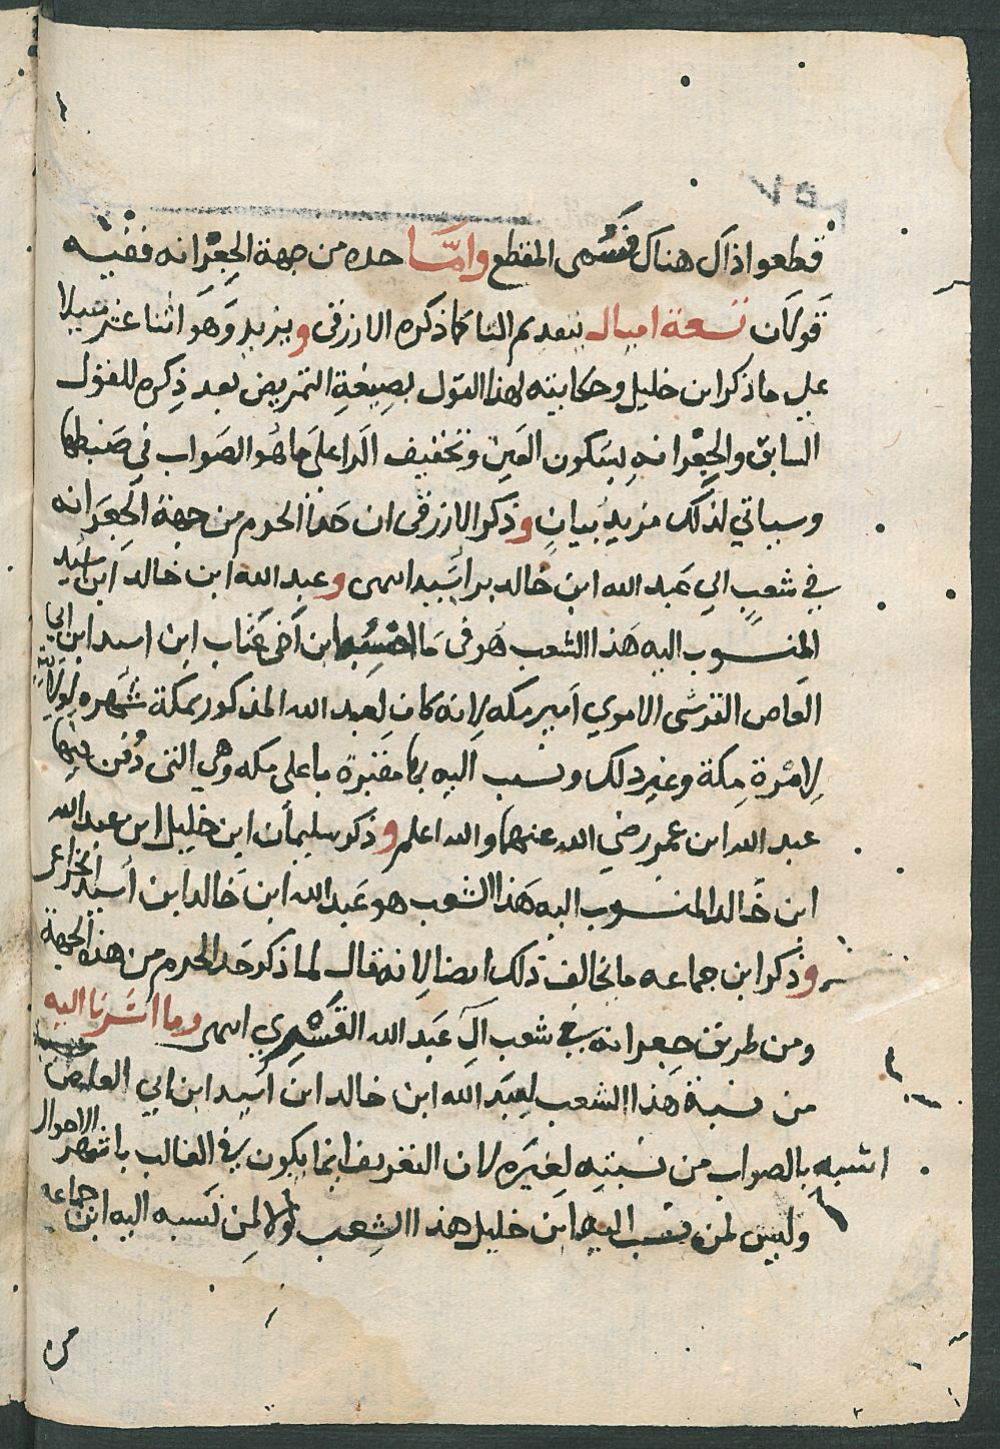 قطعوا اذاك هناك فسمى المقطع واما حده من جهة الجعرانه ففيه
قولان تسعة اميال بتقديم التا كما ذكره الازرقى وبريد وهو اثنا عشر ميلا
على ما ذكر ابن خليل وحكايته لهذا القول بصيغة التمريض بعد ذكره للقول
السابق والجعرانه بسكون العين وتخفيف الرا على ما هو الصواب في ضبطها
وسياتي لذلك مزيد بيان وذكر الازرقى ان حد الحرم من جهة الجعرانه
في شعب ال عبد الله ابن خالد بن اسيد انتهى وعبد الله ابن خالد ابن اسيد
المنسوب اليه هذا الشعب هو فى ما احسبه ابن اخى عتاب ابن اسيد ابن ابي
العاص القرشى الاموي امير مكه لانه كان لعبد الله المذكور بمكة شهره لولايته
لامرة مكة وغير ذلك ونسب اليه بها مقبرة باعلى مكه وهي التى دفن فيها
عبد الله ابن عمر رضي الله عنهما والله اعلم وذكر سليمان ابن خليل ابن عبد الله
ابن خالد المنسوب اليه هذا الشعب هو عبد الله ابن خالد ابن أسيد الخزاعى
وذكر ابن جماعه ما يخالف ذلك ايضا لانه قال لما ذكر حد الحرم من هذه الجهة
ومن طريق جعرانه في شعب آل عبد الله القشيري انتهى وما اشرنا اليه
من نسبة هذا الشعب لعبد الله ابن خالد ابن أسيد ابن ابي العاص
اشبه بالصواب من نسبته لغيره لان التعريف انما يكون في الغالب باشهر الاحوال
وليس لمن نسب اليه ابن خليل هذا الشعب ولا لمن نسبه اليه ابن جماعه
من